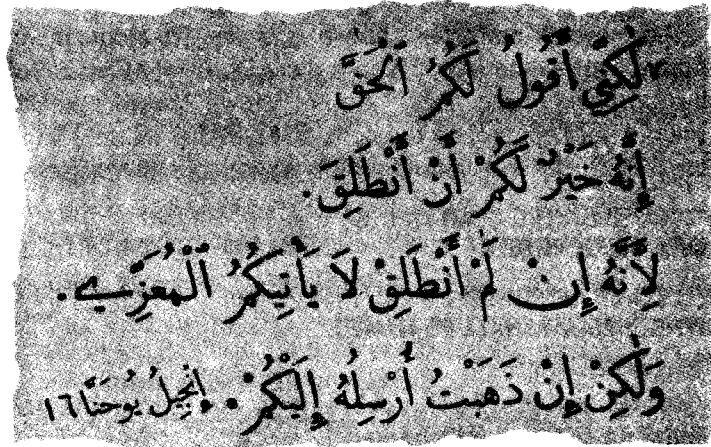 لٰكِنِّي أَقُولُ لَكُمُ ٱلْحَقَّ
إِنَّهُ خَيْرٌ لَكُمْ أَنْ أَنْطَلِقَ.
لِأَنَّهُ إِنْ لَمْ أَنْطَلِقْ لَا يَأْتِيكُمُ ٱلْمُعَزِّي.
وَلٰكِنْ إِنْ ذَهَبْتُ أُرْسِلُهُ إِلَيْكُمْ. إنجيل يُوحَنَّا ١٦